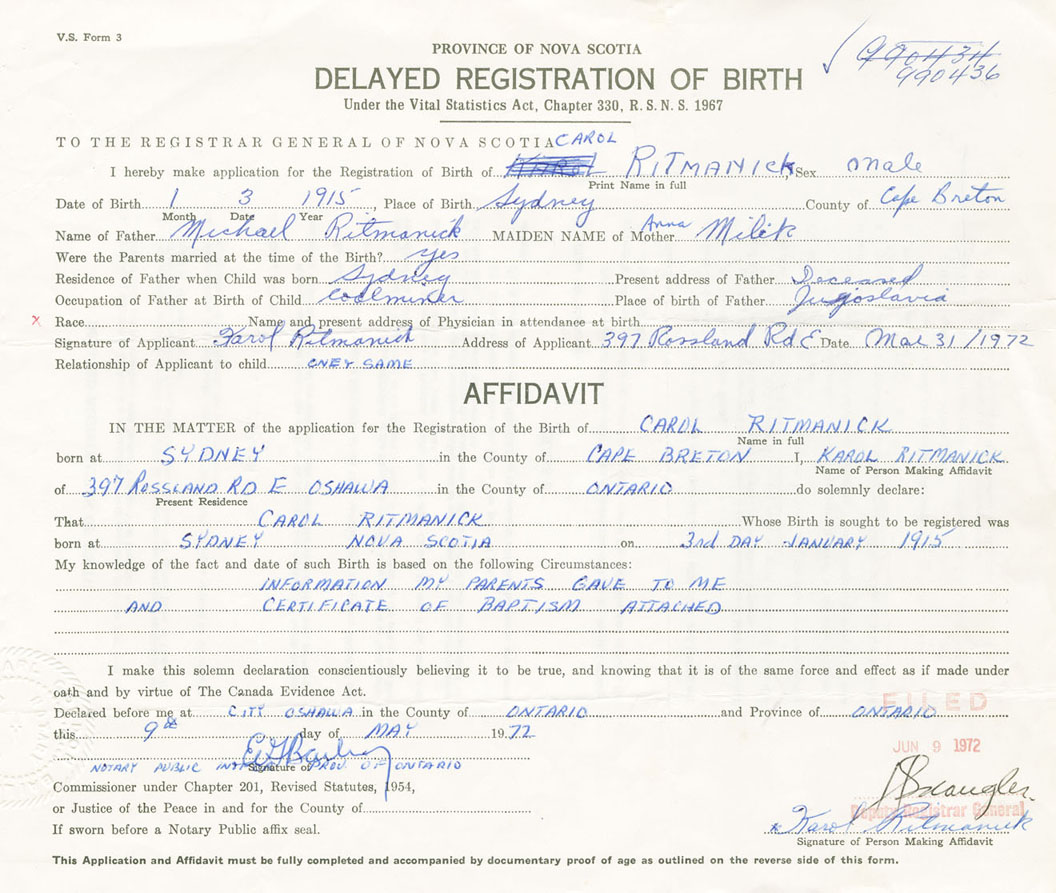 V.S. Form 3
PROVINCE OF NOVA SCOTIA
990434
990436
DELAYED REGISTRATION OF BIRTH
Under the Vital Statistics Act, Chapter 330, R. S. N. S. 1967
TO THE REGISTRAR GENERAL OF NOVA SCOTIA CAROL
I hereby make application for the Registration of Birth of RITMANICK, Sex male
Print Name in full
Date of Birth 1 3 1915, Place of Birth Sydney County of Cape Breton
Month Date Year
Name of Father Michael Ritmanick MAIDEN NAME of Mother Anna Milik
Were the Parents married at the time of the Birth? yes
Residence of Father when Child was born Sydney Present address of Father Deceased
Occupation of Father at Birth of Child coalminer Place of birth of Father Jugoslavia
x Race Name and present address of Physician in attendance at birth
Signature of Applicant Karol Ritmanick Address of Applicant 397 Rossland Rd E Date Mar 31/1972
Relationship of Applicant to child ONEY SAME
AFFIDAVIT
IN THE MATTER of the application for the Registration of the Birth of CAROL RITMANICK
Name in full
born at SYDNEY in the County of CAPE BRETON I, KAROL RITMANICK
Name of Person Making Affidavit
of 397 ROSSLAND RD E OSHAWA in the County of ONTARIO do solemnly declare:
Present Residence
That CAROL RITMANICK Whose Birth is sought to be registered was
born at SYDNEY NOVA SCOTIA on 3rd DAY JANUARY 1915
My knowledge of the fact and date of such Birth is based on the following Circumstances:
INFORMATION MY PARENTS GAVE TO ME
AND CERTIFICATE OF BAPTISM ATTACHED
I make this solemn declaration conscientiously believing it to be true, and knowing that it is of the same force and effect as if made under
oath and by virtue of The Canada Evidence Act.
FILED
Declared before me at CITY OSHAWA in the County of ONTARIO and Province of ONTARIO
this 9th day of MAY 1972
JUN 9 1972
NOTARY PUBLIC Signature of PROV. OF ONTARIO
Commissioner under Chapter 201, Revised Statutes, 1954,
or Justice of the Peace in and for the County of
Deputy Registrar General
x Karol Ritmanick
Signature of Person Making Affidavit
If sworn before a Notary Public affix seal.
This Application and Affidavit must be fully completed and accompanied by documentary proof of age as outlined on the reverse side of this form.